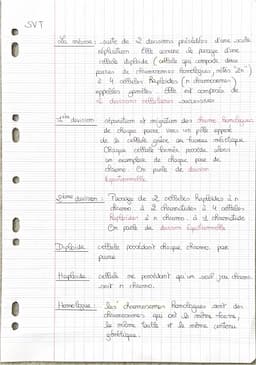 SVT
La méiose : suite de 2 divisions précédées d'une seule
réplication. Elle assure le passage d'une
cellule diploïde (cellule qui comporte deux
paires de chromosomes homologues, notés 2n)
à 4 cellules haploïdes (n chromosomes)
appelées gamètes. Elle est composée de
2 divisions cellulaires successives
1ère division : séparation et migration des chromo homologues
de chaque paire vers un pôle opposé
de la cellule grâce au fuseau mitotique
Chaque cellule formée possède alors
un exemplaire de chaque paire de
chromo. On parle de division
2ème division : Passage de 2 cellules haploïdes à n
chromo. à 2 chromatides à 4 cellules
haploïdes à n chromo. à 1 chromatide
On parle de division équationnelle
Diploïde : cellule possédant chaque chromo. par
paire
Haploïde : cellule ne possédant qu'un seul jeu chromo.
soit n chromo.
Homologue : les chromosomes homologues sont des
chromosomes qui ont la même forme,
la même taille et le même contenu
génétique.